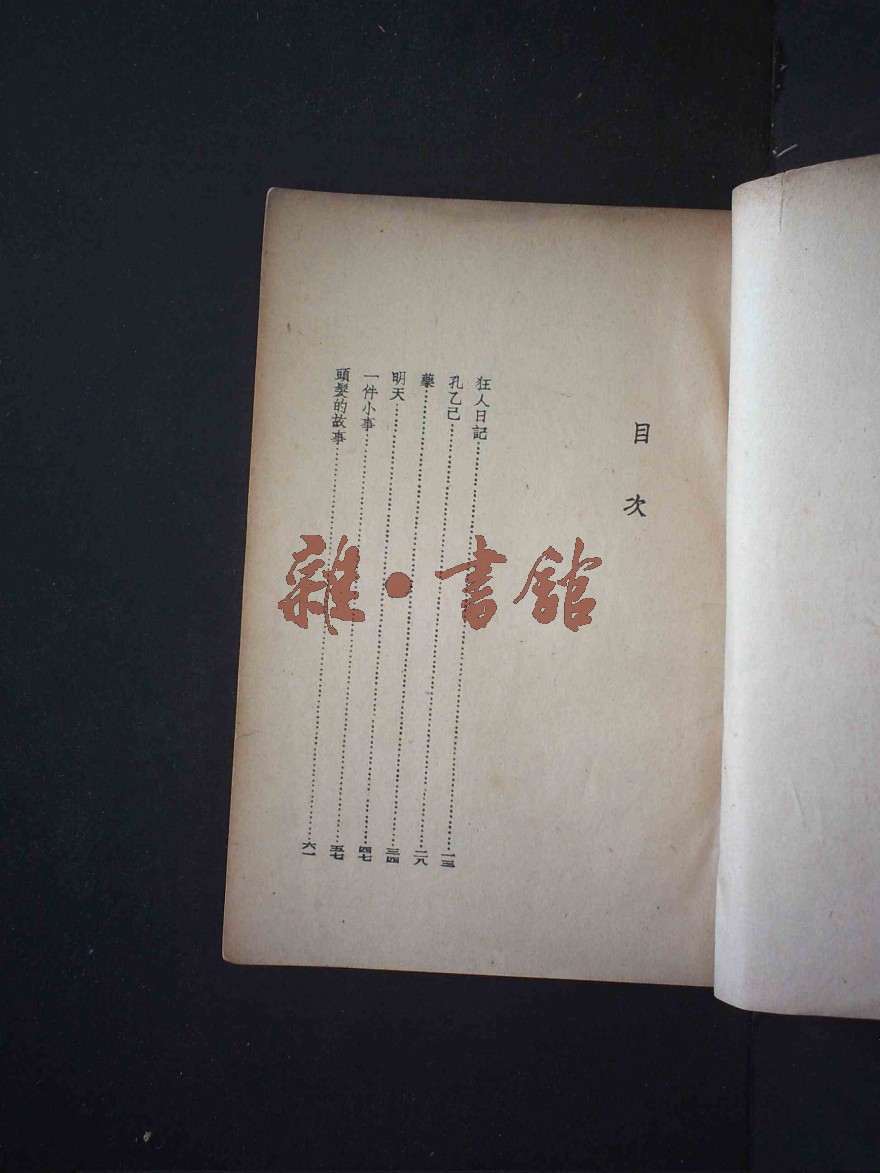 目次
狂人日記……一三
孔乙己……二八
藥……三四
明天……四七
一件小事……五七
頭髮的故事……六一
雜·書館